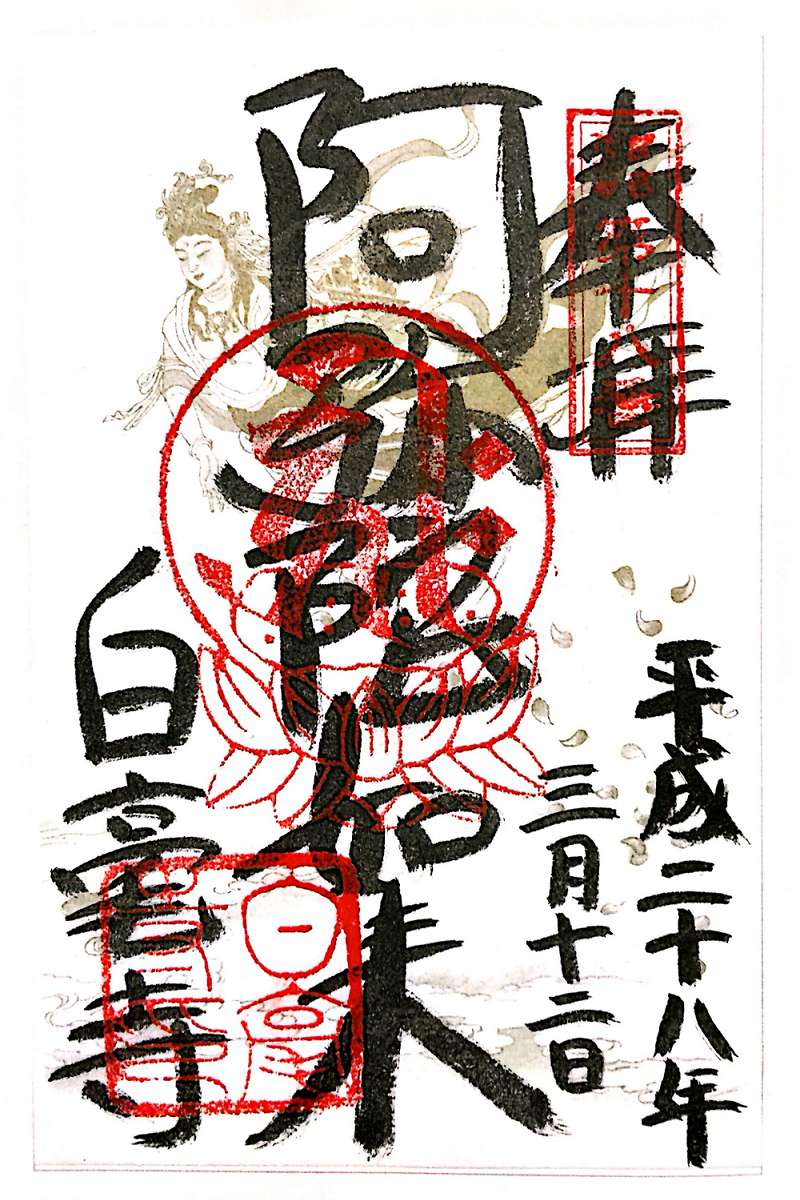 奉拝
平成二十八年
三月十二日
阿弥陀如来
白毫寺